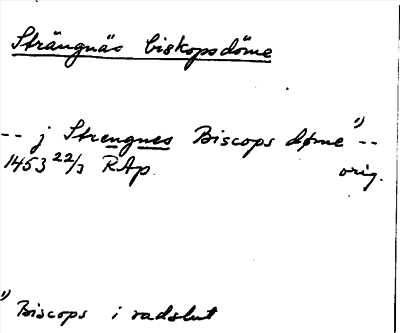 Strängnäs biskopsdöme
-- j Strengnes Biscops døme 1) --
1453 22/3 RAp. orig.
1) Biscops i radslut